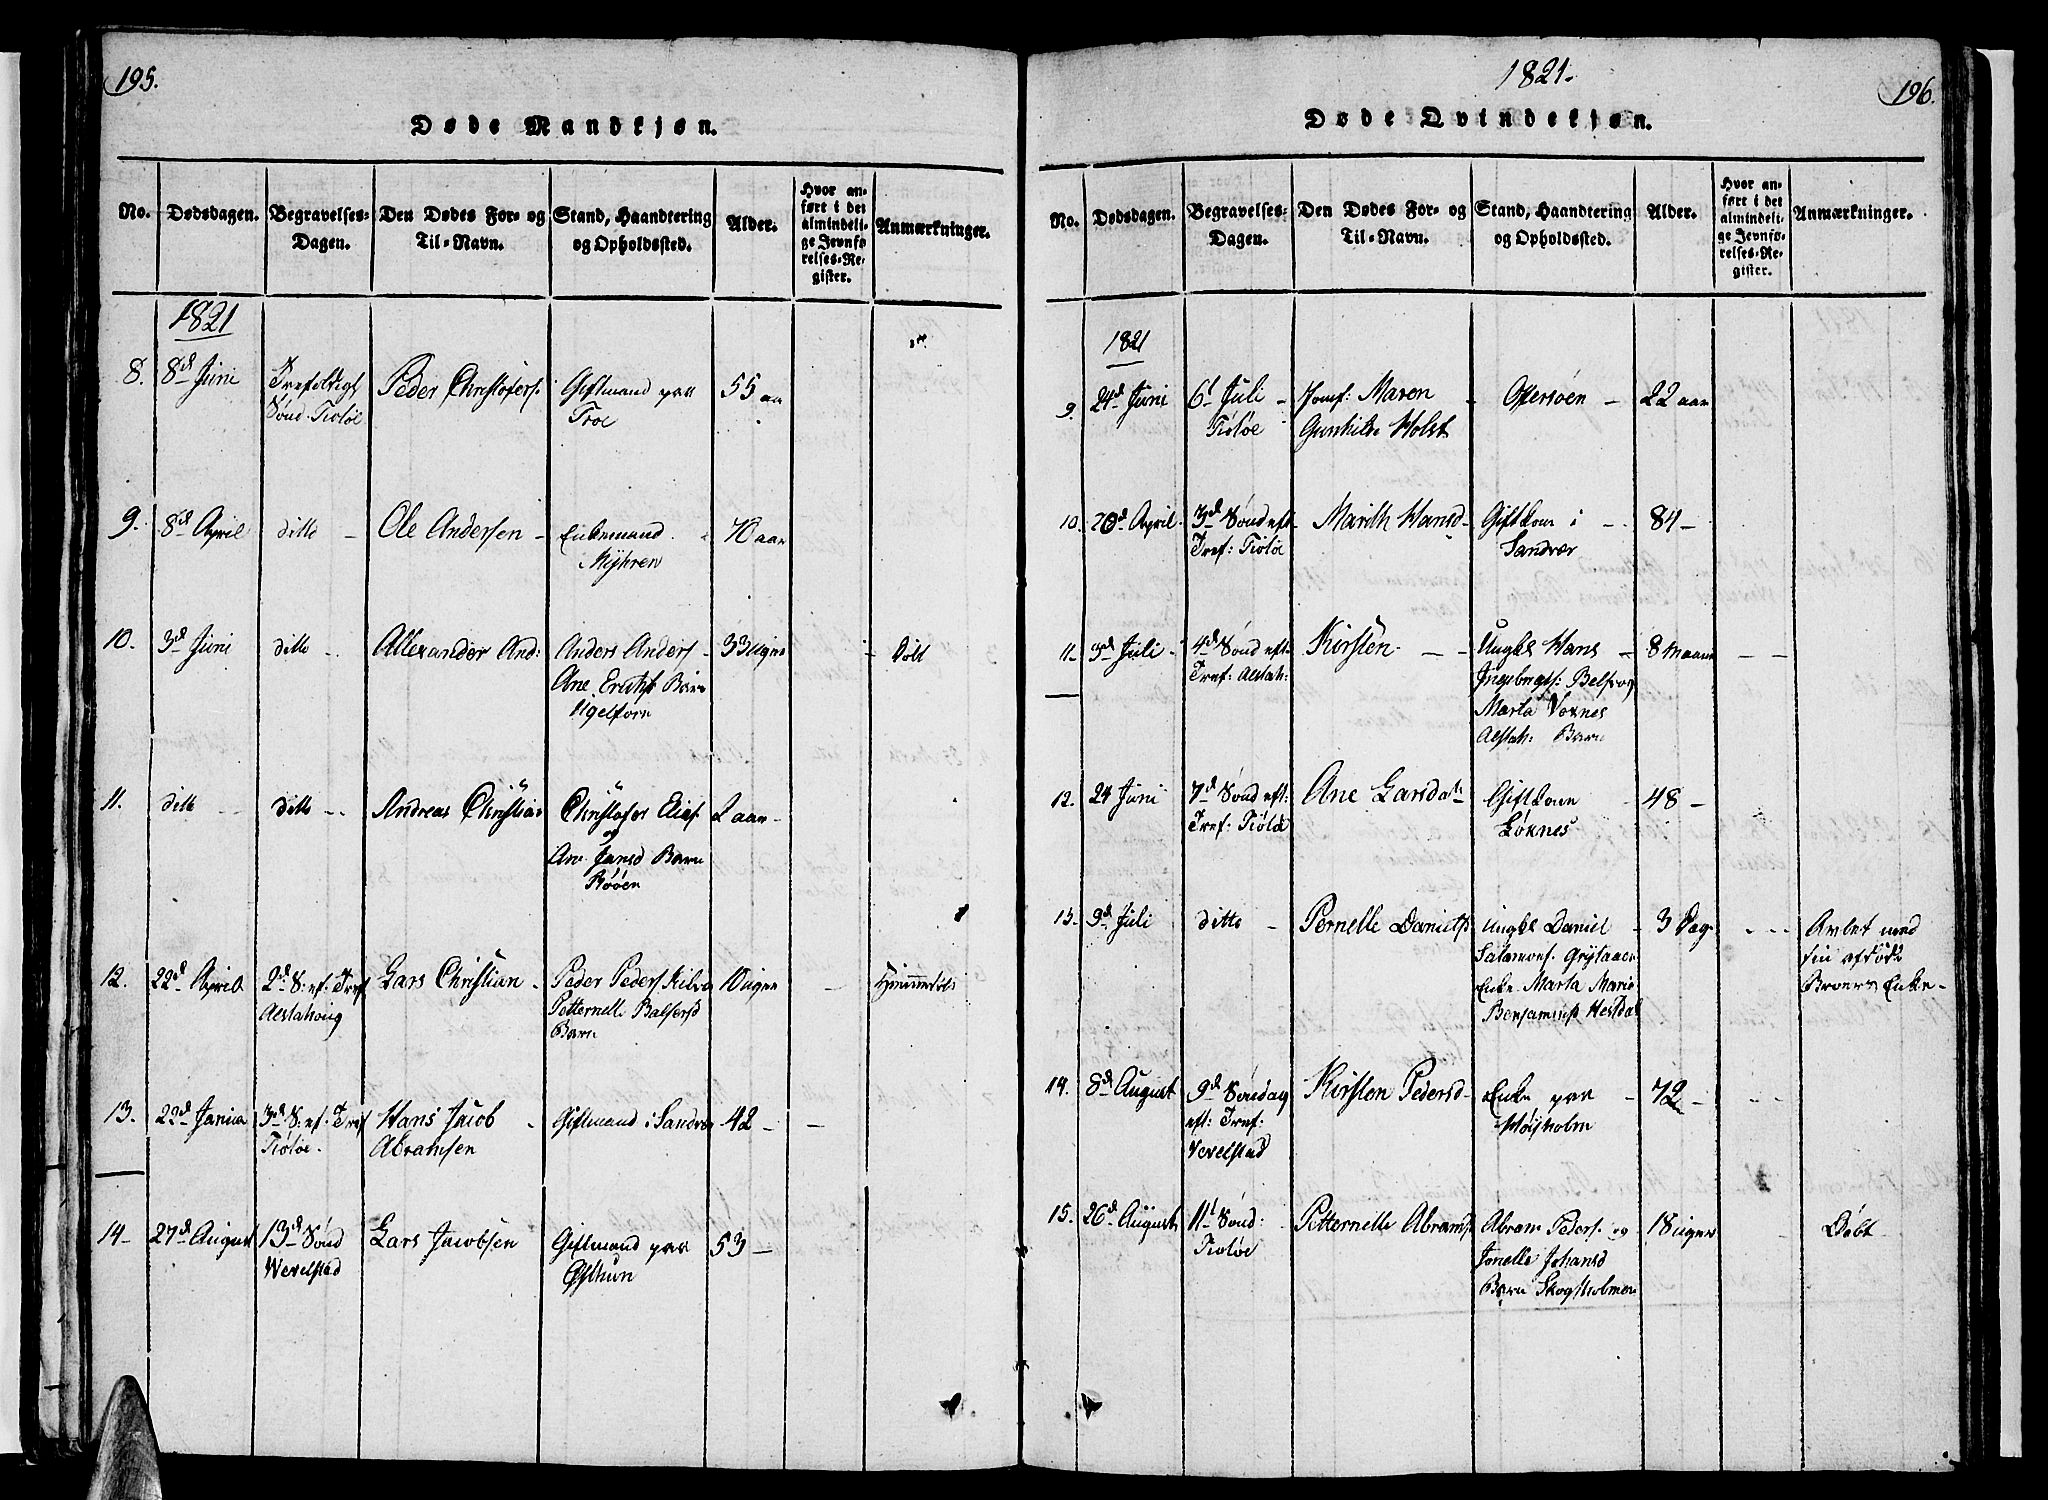 195.
Døde Mandkjøn.
No.
Dødsdagen.
Begravelses-
Dagen.
Den Dødes For- og
Til-Navn.
Stand, Haandtering
og Opholdssted.
Alder.
Hvor an-
ført i det
almindeli-
ge Jevnfø-
relses-Re-
gister.
Anmærkninger.
1821
8.
8d Juni
Trefoldigh
Sønd Tiøløe
Peder Christofers:
Giftmand paa
Troe
55 aar
9.
8d April
ditto
Ole Andersen
Enkemand
70 aar
10.
3d Juni
ditto
Allexander And:
Anders Anders
Ane Barn
33 uger
Døbt
11.
ditto
ditto
Andreas Christian
Christofer Elias
og
Ane Jansd Barn
Røöen
2 aar
12.
22d April
2d S: ef: Tref
Alstahoug
Lars Christian
Peder Peders
Petternelle Balsersd
Barn
10 uger
Himmedøbt
13.
22d Janua
3d S: ef: Tref
Tiøløe.
Hans Jacob
Abramsen
Giftmand i Sandvær
42
14
27d August
13d Sønd
Wevelstad
Lars Jacobsen
Giftmand paa
53
1821.
196.
Døde Qvindekjøn.
No.
Dødsdagen.
Begravelses-
Dagen.
Den Dødes For- og
Til-Navn.
Stand, Haandtering
og Opholdssted.
Alder.
Hvor an-
ført i det
almindeli-
ge Jevnfø-
relses-Re-
gister.
Anmærkninger.
1821
9.
24d Juni
6t Juli
Tiøløe
Jomf: Maren
Gunhilde Holst
Offersøen
22 aar
10.
20d April
3d Sønd eft
Tref: Tiøløe
Marith Hansd
Gift Kone i
Sandvær
84
11
3d Juli
4d Sønd eft
Tref: Alstah:
Kirsten
Ungkl Hans
Marta Voxnes
Alstah: Barn
8 Maan
12.
24 Juni
7d Sønd eft:
Tref: Tiøløe
Ane Larsdat
Gift Kone
Løknes
48
13.
9d Juli
ditto
Pernelle Daniels
Ungkl Daniel
Salamons:
Enke Marta Marie
Benjamins Hestdal
3 Dag
Avlet med
sin afdøde
Broers Enke
14.
8d August
9d Søndag
eft: Tref:
Vevelstad
Kirsten Pedersd
Enke paa
Høiholm
72
15.
26d August
11t Sønd:
Tiøløe
Petternelle Abrams
Abram Peders: og
Jonelle Johansd
Barn Skogsholmen
18 uger
Døbt